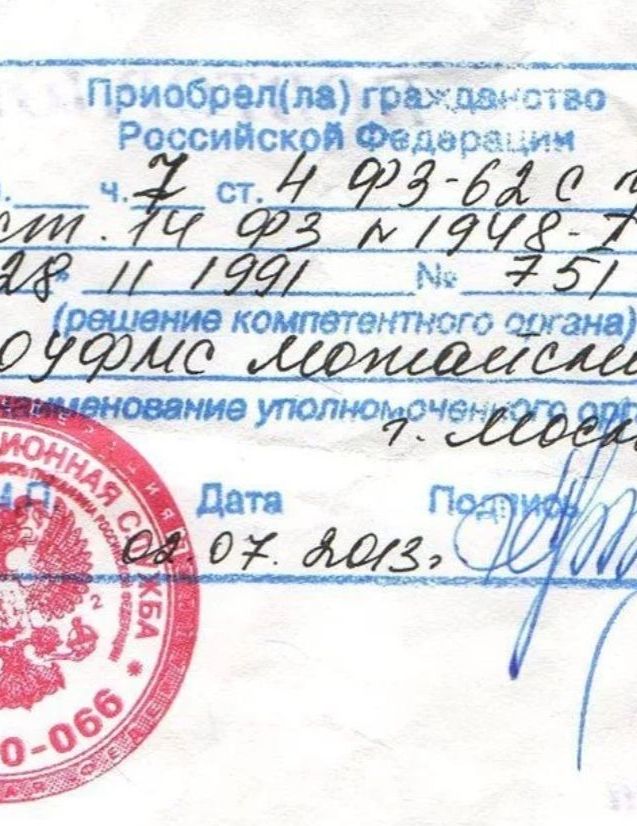 Приобрел(ла) гражданство
Российской Федерации
ч. 7 ст. 4 ФЗ-62 с
ст. 14 ФЗ N 1948-I
28" 11 1991 № 751
(решение компетентного органа)
ОУФМС Можайск
наименование уполномоченного орг
г. Моск
М.П. Дата Подпись
02.07.2013г
ИОННАЯ СЛУЖБА
0-066
2